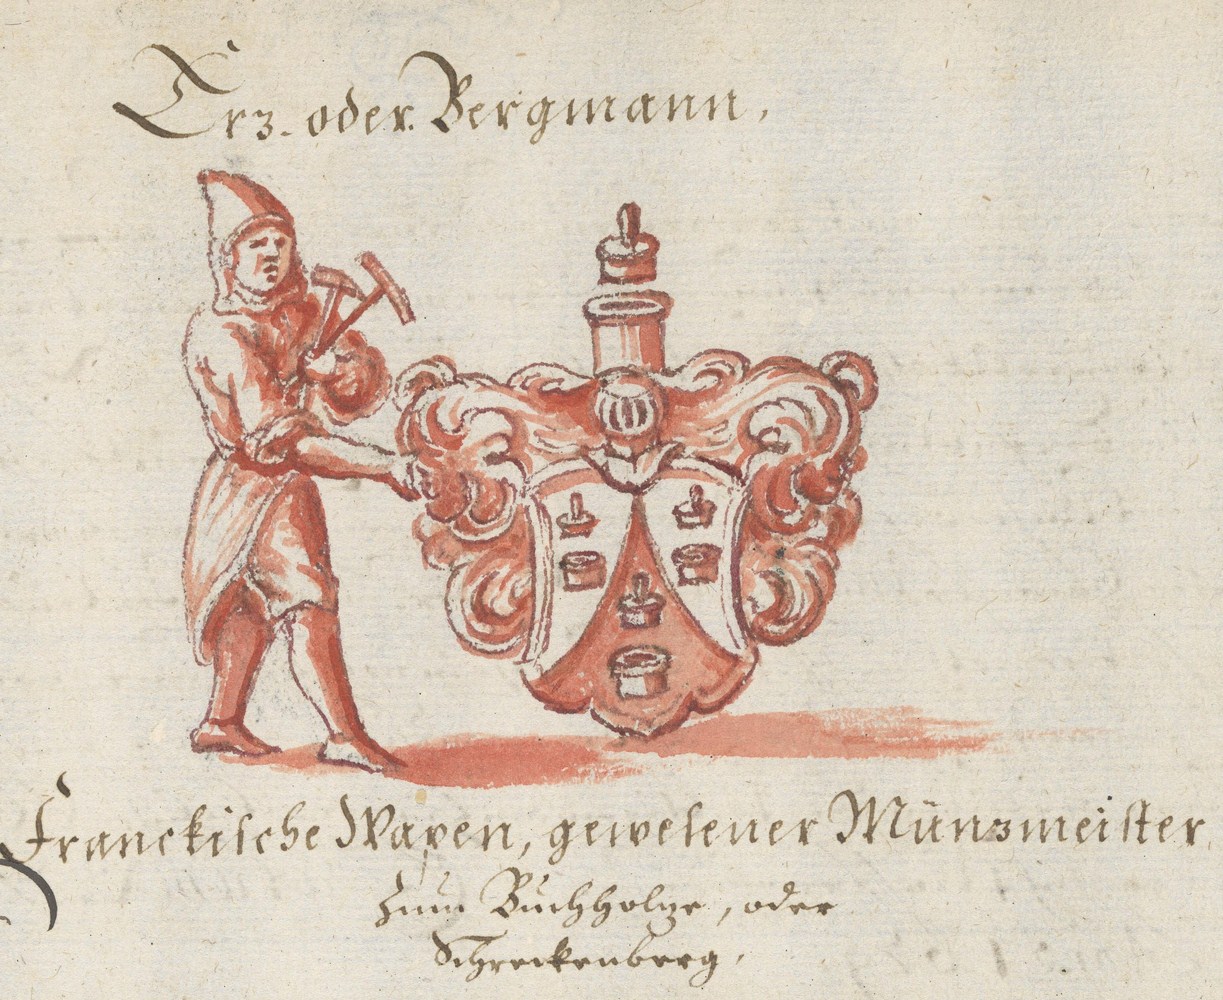 Erz- oder Bergmann,
Franckische Wapen, gewesener Münzmeister
zum Buchholze, oder
Schreckenberg.